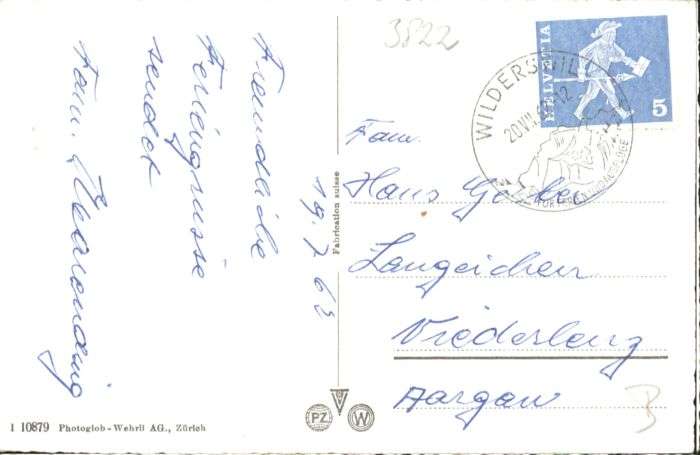 3822
HELVETIA
5
WILDERSWIL
20.VII.63-12
Freundliche
Feriengrüsse
sendet
Fam.
19.7.63
Fabrication suisse
Fam.
Hans
Niederlenz
Aargau
PZ
W
B
1 10879 Photoglob-Wehrli AG., Zürich